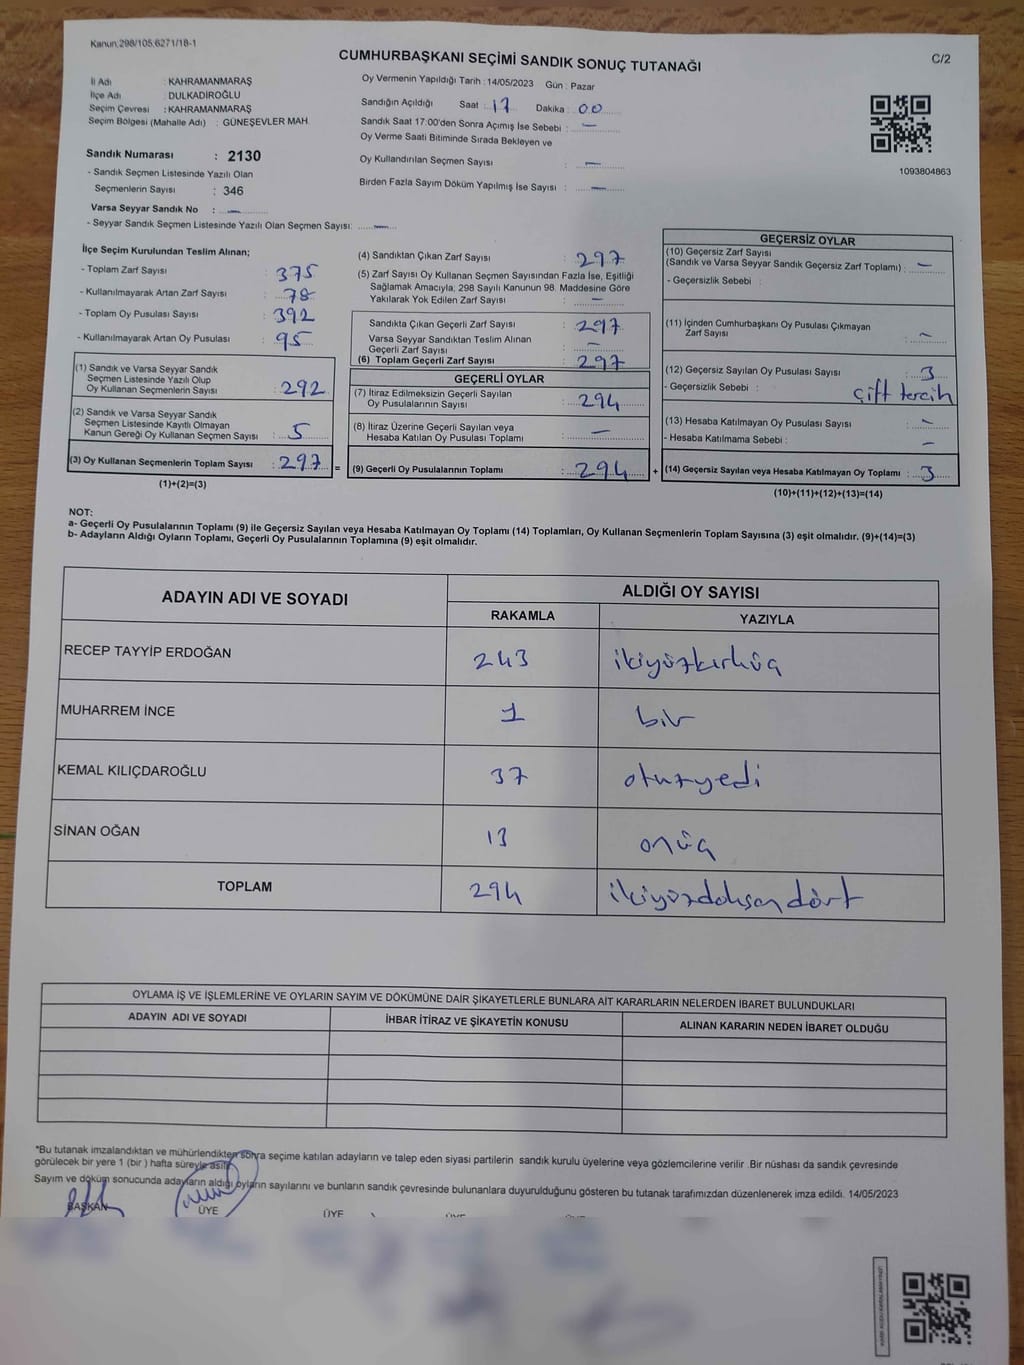 Kanun.298/105.6271/18-1
C/2
CUMHURBAŞKANI SEÇİMİ SANDIK SONUÇ TUTANAĞI
İl Adı : KAHRAMANMARAŞ
İlçe Adı : DULKADİROĞLU
Seçim Çevresi : KAHRAMANMARAŞ
Seçim Bölgesi (Mahalle Adı) : GÜNEŞEVLER MAH.
Sandık Numarası : 2130
- Sandık Seçmen Listesinde Yazılı Olan
Seçmenlerin Sayısı : 346
Varsa Seyyar Sandık No : —
- Seyyar Sandık Seçmen Listesinde Yazılı Olan Seçmen Sayısı: —
Oy Vermenin Yapıldığı Tarih : 14/05/2023 Gün : Pazar
Sandığın Açıldığı Saat : 17 Dakika : 00
Sandık Saat 17:00'den Sonra Açımış İse Sebebi : —
Oy Verme Saati Bitiminde Sırada Bekleyen ve
Oy Kullandırılan Seçmen Sayısı : —
Birden Fazla Sayım Döküm Yapılmış İse Sayısı : —
1093804863
İlçe Seçim Kurulundan Teslim Alınan;
- Toplam Zarf Sayısı : 375
- Kullanılmayarak Artan Zarf Sayısı : 78
- Toplam Oy Pusulası Sayısı : 392
- Kullanılmayarak Artan Oy Pusulası : 95
(1) Sandık ve Varsa Seyyar Sandık
Seçmen Listesinde Yazılı Olup
Oy Kullanan Seçmenlerin Sayısı : 292
(2) Sandık ve Varsa Seyyar Sandık
Seçmen Listesinde Kayıtlı Olmayan
Kanun Gereği Oy Kullanan Seçmen Sayısı : 5
(3) Oy Kullanan Seçmenlerin Toplam Sayısı : 297 =
(1)+(2)=(3)
(4) Sandıktan Çıkan Zarf Sayısı : 297
(5) Zarf Sayısı Oy Kullanan Seçmen Sayısından Fazla İse, Eşitliği
Sağlamak Amacıyla, 298 Sayılı Kanunun 98. Maddesine Göre
Yakılarak Yok Edilen Zarf Sayısı : —
Sandıkta Çıkan Geçerli Zarf Sayısı : 297
Varsa Seyyar Sandıktan Teslim Alınan
Geçerli Zarf Sayısı : —
(6) Toplam Geçerli Zarf Sayısı : 297
GEÇERLİ OYLAR
(7) İtiraz Edilmeksizin Geçerli Sayılan
Oy Pusulalarının Sayısı : 294
(8) İtiraz Üzerine Geçerli Sayılan veya
Hesaba Katılan Oy Pusulası Toplamı : —
(9) Geçerli Oy Pusulalarının Toplamı : 294 +
GEÇERSİZ OYLAR
(10) Geçersiz Zarf Sayısı
(Sandık ve Varsa Seyyar Sandık Geçersiz Zarf Toplamı) : —
- Geçersizlik Sebebi :
(11) İçinden Cumhurbaşkanı Oy Pusulası Çıkmayan
Zarf Sayısı : —
(12) Geçersiz Sayılan Oy Pusulası Sayısı : 3
- Geçersizlik Sebebi : çift tercih
(13) Hesaba Katılmayan Oy Pusulası Sayısı : —
- Hesaba Katılmama Sebebi : —
(14) Geçersiz Sayılan veya Hesaba Katılmayan Oy Toplamı : 3
(10)+(11)+(12)+(13)=(14)
NOT:
a- Geçerli Oy Pusulalarının Toplamı (9) ile Geçersiz Sayılan veya Hesaba Katılmayan Oy Toplamı (14) Toplamları, Oy Kullanan Seçmenlerin Toplam Sayısına (3) eşit olmalıdır. (9)+(14)=(3)
b- Adayların Aldığı Oyların Toplamı, Geçerli Oy Pusulalarının Toplamına (9) eşit olmalıdır.
ADAYIN ADI VE SOYADI ALDIĞI OY SAYISI
RAKAMLA YAZIYLA
RECEP TAYYİP ERDOĞAN 243 ikiyüzkırküç
MUHARREM İNCE 1 bir
KEMAL KILIÇDAROĞLU 37 otuzyedi
SİNAN OĞAN 13 onüç
TOPLAM 294 ikiyüzdoksandört
OYLAMA İŞ VE İŞLEMLERİNE VE OYLARIN SAYIM VE DÖKÜMÜNE DAİR ŞİKAYETLERLE BUNLARA AİT KARARLARIN NELERDEN İBARET BULUNDUKLARI
ADAYIN ADI VE SOYADI İHBAR İTİRAZ VE ŞİKAYETİN KONUSU ALINAN KARARIN NEDEN İBARET OLDUĞU
*Bu tutanak imzalandıktan ve mühürlendikten sonra seçime katılan adayların ve talep eden siyasi partilerin sandık kurulu üyelerine veya gözlemcilerine verilir .Bir nüshası da sandık çevresinde
görülecek bir yere 1 (bir ) hafta süreyle asılır.
Sayım ve döküm sonucunda adayların aldığı oyların sayılarını ve bunların sandık çevresinde bulunanlara duyurulduğunu gösteren bu tutanak tarafımızdan düzenlenerek imza edildi. 14/05/2023
BAŞKAN ÜYE ÜYE